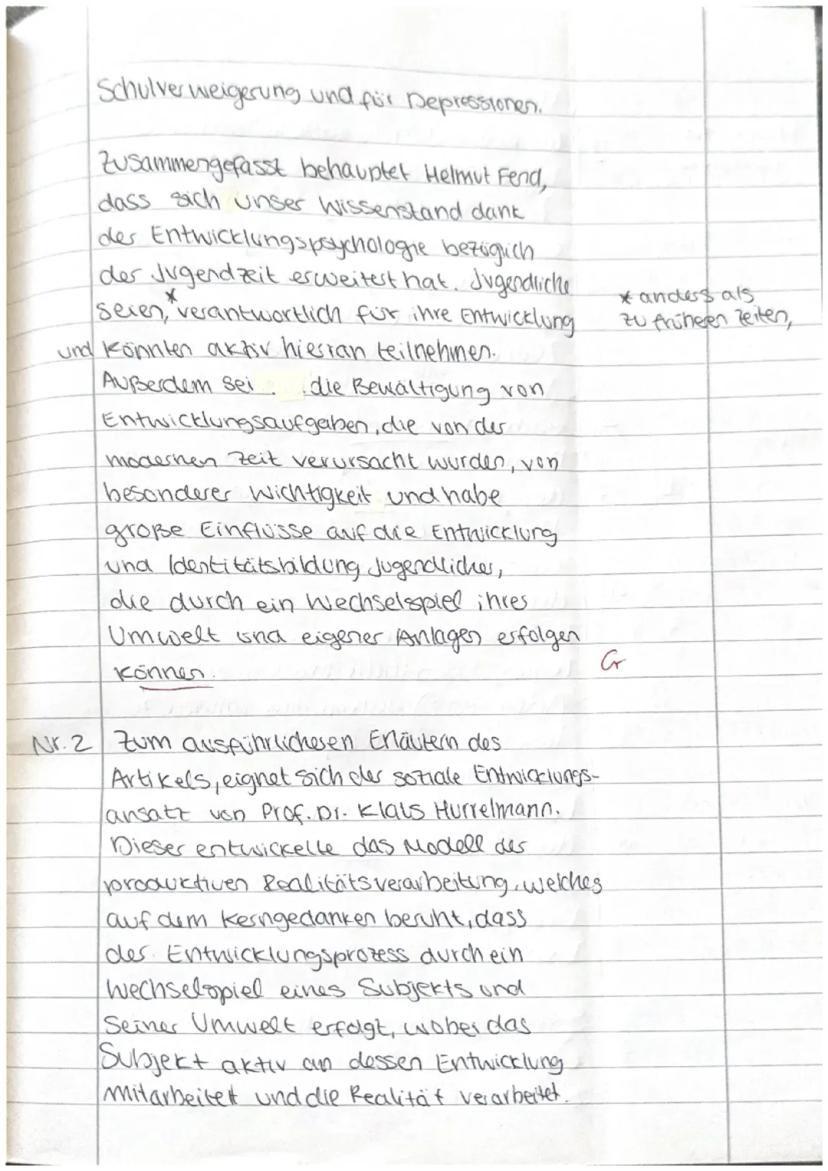 Schulverweigerung und für Depressionen.
Zusammengefasst behauptet Helmut Fend,
dass sich unser Wissenstand dank
der Entwicklungspsychologie bezüglich
der Jugendzeit erweitert hat. Jugendliche
seien,* verantwortlich für ihre Entwicklung
* anders als
zu früheren Zeiten,
und könnten aktiv hieran teilnehmen.
Außerdem sei die Bewältigung von
Entwicklungsaufgaben, die von der
modernen Zeit verursacht wurden, von
besonderer Wichtigkeit und habe
große Einflüsse auf die Entwicklung
und Identitätsbildung Jugendlicher,
die durch ein Wechselspiel ihres
Umwelt und eigener Anlagen erfolgen
können.
Gr
Nr. 2 Zum ausführlicheren Erläutern des
Artikels, eignet sich der soziale Entwicklungs-
ansatz von Prof. Dr. Klaus Hurrelmann.
Dieser entwickelte das Modell der
produktiven Realitätsverarbeitung, welches
auf dem Kerngedanken beruht, dass
der Entwicklungsprozess durch ein
Wechselspiel eines Subjekts und
seiner Umwelt erfolgt, wobei das
Subjekt aktiv an dessen Entwicklung
mitarbeitet und die Realität verarbeitet.